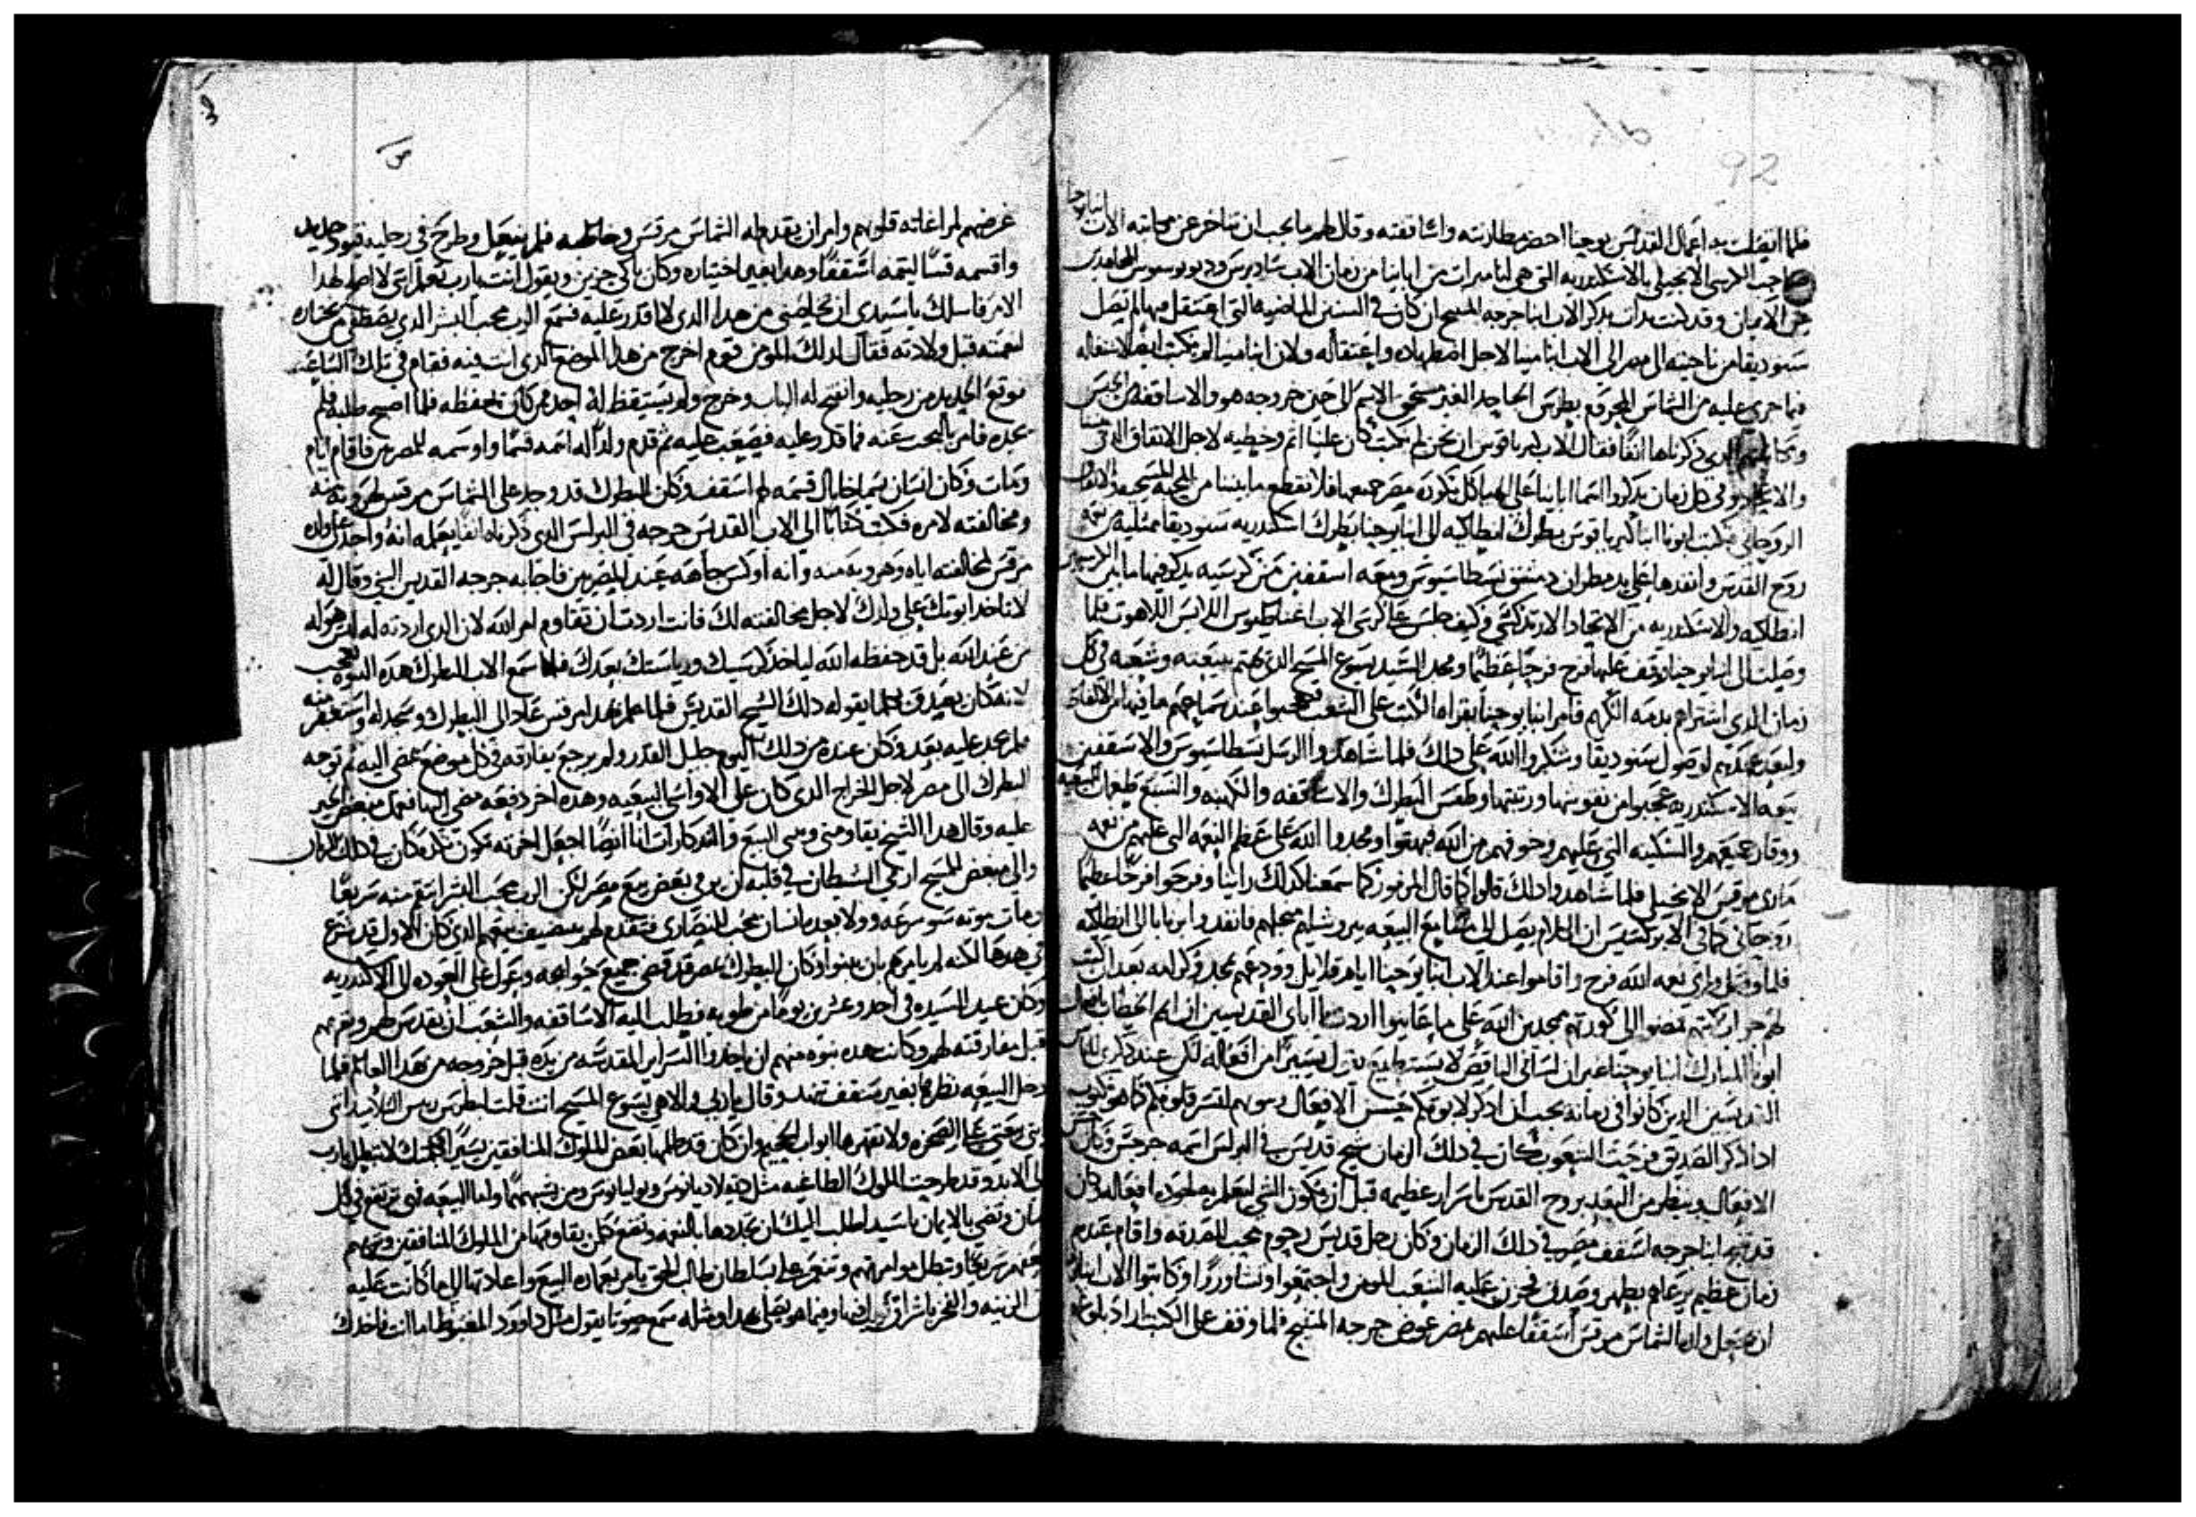 92
فلما اتصلت به اعمال القديس يوحنا احضر مطارنته واساقفته وقال لهم ما يجب ان نتاخر عن مكاتبة الاب انبا يوحنا
صاحب الكرسي الانجيلي بالاسكندريه التي هي لنا ميراث من ابائنا من زمان الاب ساويرس وديوسقوس المجاهدين
عن الامان وقد كنت بدات بذكر الاب انبا جرجه المسيح ان كان في السنين الماضيه التي اعتقل فيها لم تصل
سنوديقا من ناحيته الى مصر الى الاب انبا مينا لاجل اضطهاده واعتقاله ولان انبا مينا لم يكتب ايضا لاشتغاله
فيما جرى عليه من الشماس المجروم بطرس الجاحد الغير مستحق الاسم الى حين خروجه هو والاساقفه من الحبس
الذي ذكرناها انفا فقال الاب كيرياقوس ان نحن لم نكتب كان علينا اثم وخطيه لاجل الاتفاق الذي
في كل زمان يذكروا اسما ابائنا على الهياكل بكورة مصر جميعها فلا نقطع ما بيننا من المحبه المسيحيه
الروحاني فكتب ابونا انبا كيرياقوس بطرك انطاكيه الى انبا يوحنا بطرك اسكندريه سنوديقا ممتليه من نعمه
روح القدس وانفدها على يد مطران دمشق نسطاسيوس ومعه اسقفين من كرسيه يذكر فيها ما بين الكرسيين
انطاكيه والاسكندريه من الاتحاد الارتدكسي وكيف جلس على كرسي الاب اغناطيوس اللابس اللاهوت فلما
وصلت الى انبا يوحنا ووقف عليها فرح فرحا عظيما ومجد السيد يسوع المسيح الذي يهتم ببيعته وشعبه في كل
زمان الذي اشتراهم بدمه الكريم فامر انبا يوحنا بقراة الكتب على الشعب فعجبوا عند سماعهم ما فيها من الالفاظ
ولبعد عهدهم لوصول سنوديقا وشكروا الله على ذلك فلما شاهدوا الرسل نسطاسيوس والاسقفين
بيعه الاسكندريه عجبوا من تقويتها ورتبتها وطقس البطرك والاساقفه والكهنه والشعب
ووقار جميعهم والسكينه التي عليهم وخوفهم من الله فبهتوا ومجدوا الله على عظم النعمه التي عليهم من نعمه
ماري مرقس الانجيلي فلما شاهدوا ذلك قالوا كما قال المزمور كما سمعنا كذلك راينا وفرحوا فرحا عظيما
روحاني كما في الابركسيس ان الكلام يصل الى مسامع البيعه بيروشليم فانفدوا برنابا الى انطاكيه
فلما وصل وراى نعمه الله فرح واقاموا عند الاب انبا يوحنا اياما قلايل وودعهم بمجد وكرامه بعد ان كتب
لهم جواب كتبهم فمضوا الى كورتهم ممجدين الله على ما عاينوا اردت يا ابائي القديسين ان اتم الخطاب باعمال
ابونا المبارك انبا يوحنا غير ان لساني الناقص لا يستطيع يقول يسيرا من افعاله لكن عند ذكري الاباء
القديسين الذين كانوا في زمانه يجب ان اذكر لابوتكم حسن الافعال لتسر قلوبكم كما هو مكتوب
اذا ذكر الصديق فرحت الشعوب كان في ذلك الزمان شيخ قديس في البرلس اسمه جرجه وكان حسن
الافعال وينظر من البعد بروح القدس باسرار عظيمه قبل ان تكون التي ليعلم بها لجوده افعاله وكان
قد تنيح انبا جرجه اسقف مصر في ذلك الزمان وكان رجل قديس رحوم محب للصدقه واقام عندهم
زمان عظيم يرعاهم بطهر وصدق فحزن عليه الشعب المومن واجتمعوا وتشاوروا وكاتبوا الاب البطرك
ان يجعل ولده الشماس مرقس اسقفا عليهم بمصر عوض جرجه المتنيح فلما وقف على الكتب اراد بلوغ
غرضهم لمراعاته قلوبهم وامر ان يتقدم له الشماس مرقس وخاطبه فلم يفعل وطرح في رجليه قيود حديد
واقسمه قسا ليتمه اسقفا وهذا بغير اختياره وكان باكي حزين ويقول انت يا رب تعلم اني لا اصلح لهذا
الامر فاسلك يا سيدي ان تخلصني من هذا الذي لا اقدر عليه فسمع الرب محب البشر الذي يصطفي من يختاره
لنعمته قبل ولادته فقال لذلك المومن قوم اخرج من هذا الموضع الذي انت فيه فقام في تلك الساعه
فوقع الحديد من رجليه وانفتح له الباب وخرج ولم يستيقظ له احد ممن كان يحفظه فلما اصبح طلبه فلم
يجده فامر بالبحث عنه فما قدر عليه فصعب عليه ثم قدم ولدا له اسمه قسما واوسمه للمصريين فاقام ايام
ومات وكان انسان يسما خايال قسمه لهم اسقف وكان البطرك قد وجد على الشماس مرقس لهروبه منه
ومخالفته لامره فكتب كتابا الى الاب القديس جرجه في البرلس الذي ذكرناه انفا يعلمه انه واجد على ولده
مرقس لمخالفته اياه وهروبه منه وانه اوكس جاهه عند المصريين فاجابه جرجه القديس النبي وقال له
لا تاخذ ابوتك على ولدك لاجل مخالفته لك فانت اردت ان تقاوم امر الله لان الذي اردته له ليس هو له
من عند الله بل قد حفظه الله لياخذ كرسيك ورياستك بعدك فلما سمع الاب البطرك هذه النبوه تعجب
لانه كان يصدق بكلما يقوله ذلك الشيخ القديس فلما علم بهذا مرقس عاد الى البطرك وسجد له واستغفر منه
فلم يجد عليه بعد وكان عنده من ذلك اليوم جليل القدر ولم يرجع يفارقه في كل موضع يمضي اليه ثم توجه
البطرك الى مصر لاجل الخراج الذي كان على الاواسي البيعيه وهذه اخر دفعه مضى اليها
عليه وقال هذا الشيخ يقاومني انا ايضا اجعل اخرته تكون نكده كان في ذلك الزمان
والي مبغض للمسيح ارمى الشيطان في قلبه ان يرمي بعض بيع مصر لكن الرب محب البشر انتقم منه سريعا
ومات موته سو بسرعه وولا بعده انسان محب للنصارى
في هدمها لكنه لم يامرهم بان يبنوا وكان البطرك بمصر قد قضى جميع حوايجه وعول على العوده الى الاسكندريه
وكان عيد السيده في احد وعشرين يوما من طوبه فطلب اليه الاساقفه والشعب ان يقدس لهم ويقربهم
قبل مفارقته لهم وكانت هذه نبوه منهم ان ياخذوا السراير المقدسه من يده قبل خروجه من هذا العالم فلما
دخل البيعه نظرها بغير سقف تنهد وقال يا ربي والاهي يسوع المسيح انت قلت لبطرس ريس التلاميذ اني
ابني بيعتي على الصخره ولا تقهرها ابواب الجحيم وان كان قد ظلمها بعض الملوك المنافقين يسيرا كلمتك لا تبطل يا رب
الى الابد وقد طرحت الملوك الطاغيه مثل دقلاديانوس ويوليانوس ومن يشبههما ولنا البيعه فهي ترتفع في كل
زمان وتضي بالايمان يا سيد اطلب اليك ان تجددها بالنعمه وتمنع كلمن يقاومها من الملوك المنافقين
سريعا وتبطل موامرتهم وتنعم علينا بسلطان طالب الحق يامر بعماره البيع واعادتها الى ما كانت عليه
من الزينه والفخر وفيما هو يصلي بهذا ومثله سمع صوتا يقول مثل داوود المغبوط اما انت فاخذك